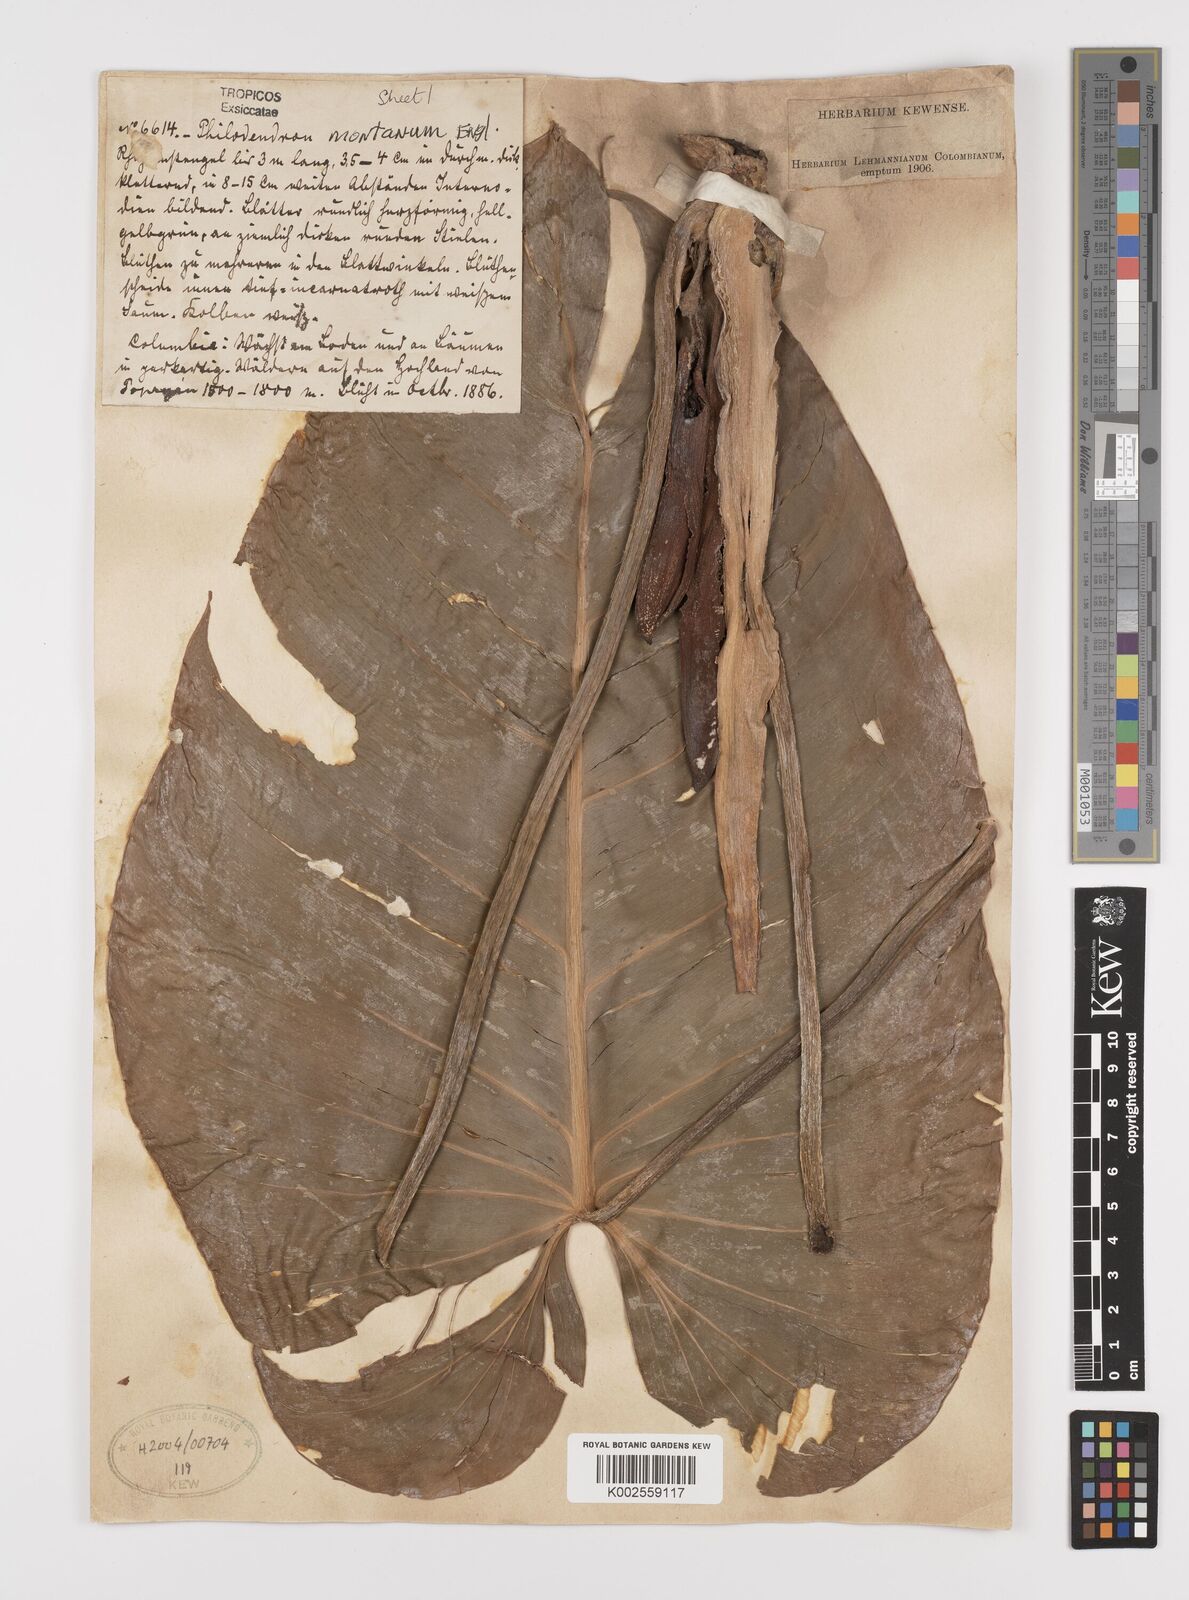 TROPICOS
Exsiccatae
Sheet 1
No 6614. - Philodendron montanum Engl.
bis 3 m lang, 3.5 - 4 cm im Durchm. dick,
kletternd, in 8-15 cm weiten Abständen Interno-
dien bildend. Blätter rundlich herzförmig, hell-
gelbgrün, an ziemlich dicken runden Stielen.
Blüthen zu mehreren in den Blattwinkeln. Blüthen-
scheide innen tief-incarnatroth mit weißem
Saum. Kolben weiß.
Columbia: Wächst am Boden und an Bäumen
in Wäldern auf den Hochland von
Popayan 1500 - 1800 m. Blüht in Octbr. 1886.
HERBARIUM KEWENSE.
HERBARIUM LEHMANNIANUM COLOMBIANUM,
emptum 1906.
ROYAL BOTANIC GARDENS
H2004/00704
119
KEW
ROYAL BOTANIC GARDENS KEW
K002559117
inches
centimetres
Don Williams
M001053
Kew
Royal Botanic Gardens
copyright reserved
0 1 2 3 4 5 6 7 8 9 10
cm